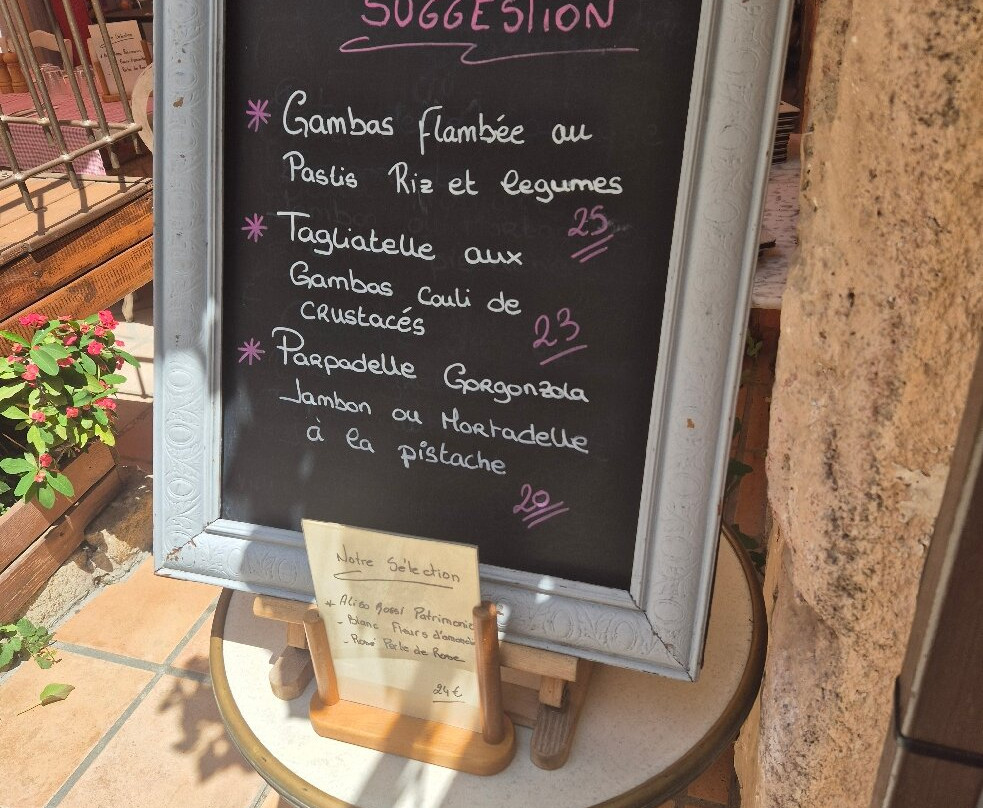 SUGGESTION
* Gambas flambée au
Pastis Riz et legumes
25
* Tagliatelle aux
Gambas Couli de
crustacés
23
* Parpadelle Gorgonzola
Jambon ou Mortadelle
à la pistache
20
Notre Sélection
* Patrimonie
- Blanc Fleurs d'
- Rosé Perle de Rose
24€